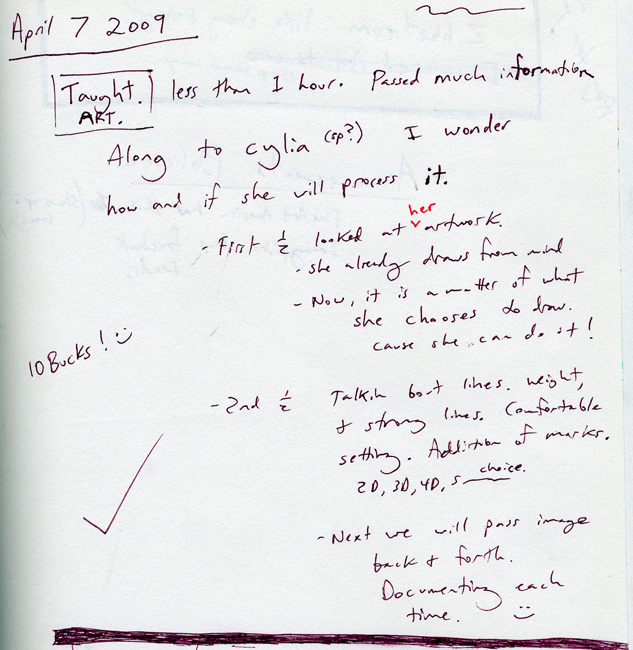 April 7 2009
Taught. less than 1 hour. Passed much information
ART.
Along to cylia (sp?) I wonder
how and if she will process it.
- First ½ looked at her artwork.
- she already draws from mind
- Now, it is a matter of what
she chooses to draw.
cause she can do it!
10 Bucks! :)
- 2nd ½ Talkin bout lines. weight,
& strong lines. Comfortable
setting. Addition of marks.
2D, 3D, 4D, 5 choice.
- Next we will pass image
back & forth.
Documenting each
time. :)